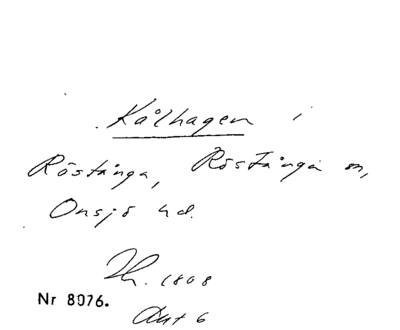 Kålhagen i
Röstånga, Röstånga sn,
Onsjö hd.
1808
Nr 8076.
Akt 6